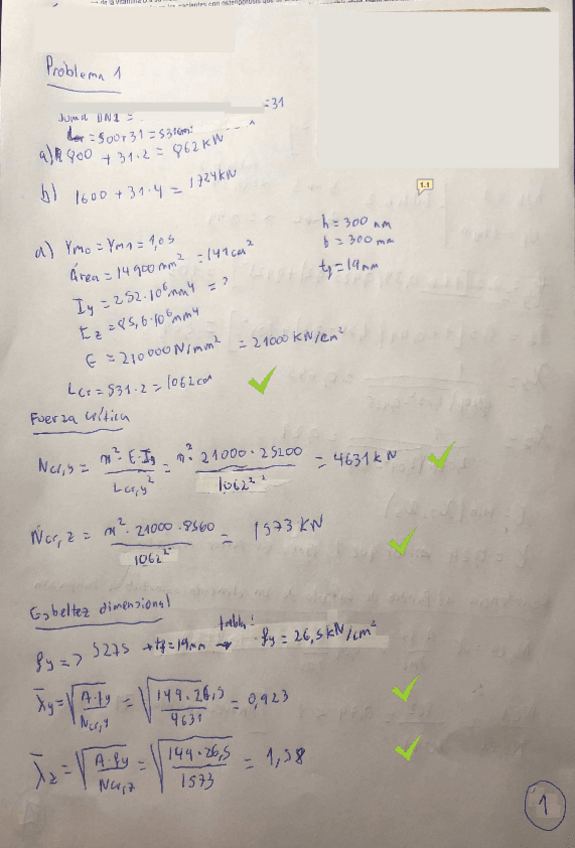 Problema 1
Suma DNI = =31
Lcr = 500+31 = 531cm
a) 800 + 31·2 = 862 kN
b) 1600 + 31·4 = 1724 kN
1.1
a) γM0 = γM1 = 1,05
h = 300 mm
Área = 14900 mm² = 149 cm²
b = 300 mm
Iy = 252·10⁶ mm⁴ = ?
tf = 19 mm
Iz = 85,6·10⁶ mm⁴
E = 210000 N/mm² = 21000 KN/cm²
Lcr = 531·2 = 1062 cm
Fuerza crítica
Ncr,y = π²·E·Iy / Lcr,y² = π²·21000·25200 / 1062² = 4631 kN
Ncr,z = π²·21000·8560 / 1062² = 1573 KN
Esbeltez dimensional
fy => S275 + tf=19mm → tabla: fy = 26,5 kN/cm²
λ̄y = √(A·fy / Ncr,y) = √(149·26,5 / 4631) = 0,923
λ̄z = √(A·fy / Ncr,z) = √(149·26,5 / 1573) = 1,58
1